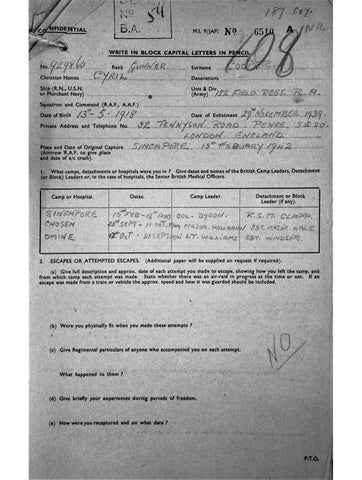 187 Coy.
CONFIDENTIAL
NO 54
B.A.
M.I. 9/JAP/ No 6510 A
WRITE IN BLOCK CAPITAL LETTERS IN PENCIL
No. 929860 Rank GUNNER Surname COOPER
Christian Names CYRIL Decorations
Ship (R.N., U.S.N. or Merchant Navy) Unit & Div. (Army) 122 FIELD REGT. R.A.
Squadron and Command (R.A.F., A.A.F.)
Date of Birth 13-5-1918 Date of Enlistment 29 NOVEMBER 1939.
Private Address and Telephone No. 32, TENNYSON ROAD. PENGE. S.E.20.
LONDON ENGLAND.
Place and Date of Original Capture SINGAPORE 15 FEBRUARY 1942
(Aircrew R.A.F. to give place
and date of a/c crash).
1. What camps, detachments or hospitals were you in? Give dates and names of the British Camp Leaders, Detachment
(or Block) Leaders or, in case of the hospitals, the Senior British Medical Officers.
Camp or Hospital. Dates. Camp Leader. Detachment or Block Leader (if any).
SINGAPORE 15 FEB - 16 AUG COL. DYSON. R.S.M. CLAPP.
CHOSEN 25 SEPT - 11 OCT. MAJOR. SGT. MAJOR. HALE
OMINE OCT - 21 SEPT LT. WILLIAMS SGT. WINDSOR.
2. ESCAPES OR ATTEMPTED ESCAPES. (Additional paper will be supplied on request if required).
(a) Give full description and approx. date of each attempt you made to escape, showing how you left the camp, and
from which camp each attempt was made. State whether there was an air-raid in progress at the time or not. If an
escape was made from a train or vehicle the approx. speed and how it was guarded should be included.
(b) Were you physically fit when you made these attempts?
(c) Give Regimental particulars of anyone who accompanied you on each attempt.
NO
What happened to them?
(d) Give briefly your experiences during periods of freedom.
(e) How were you recaptured and on what date?
P.T.O.